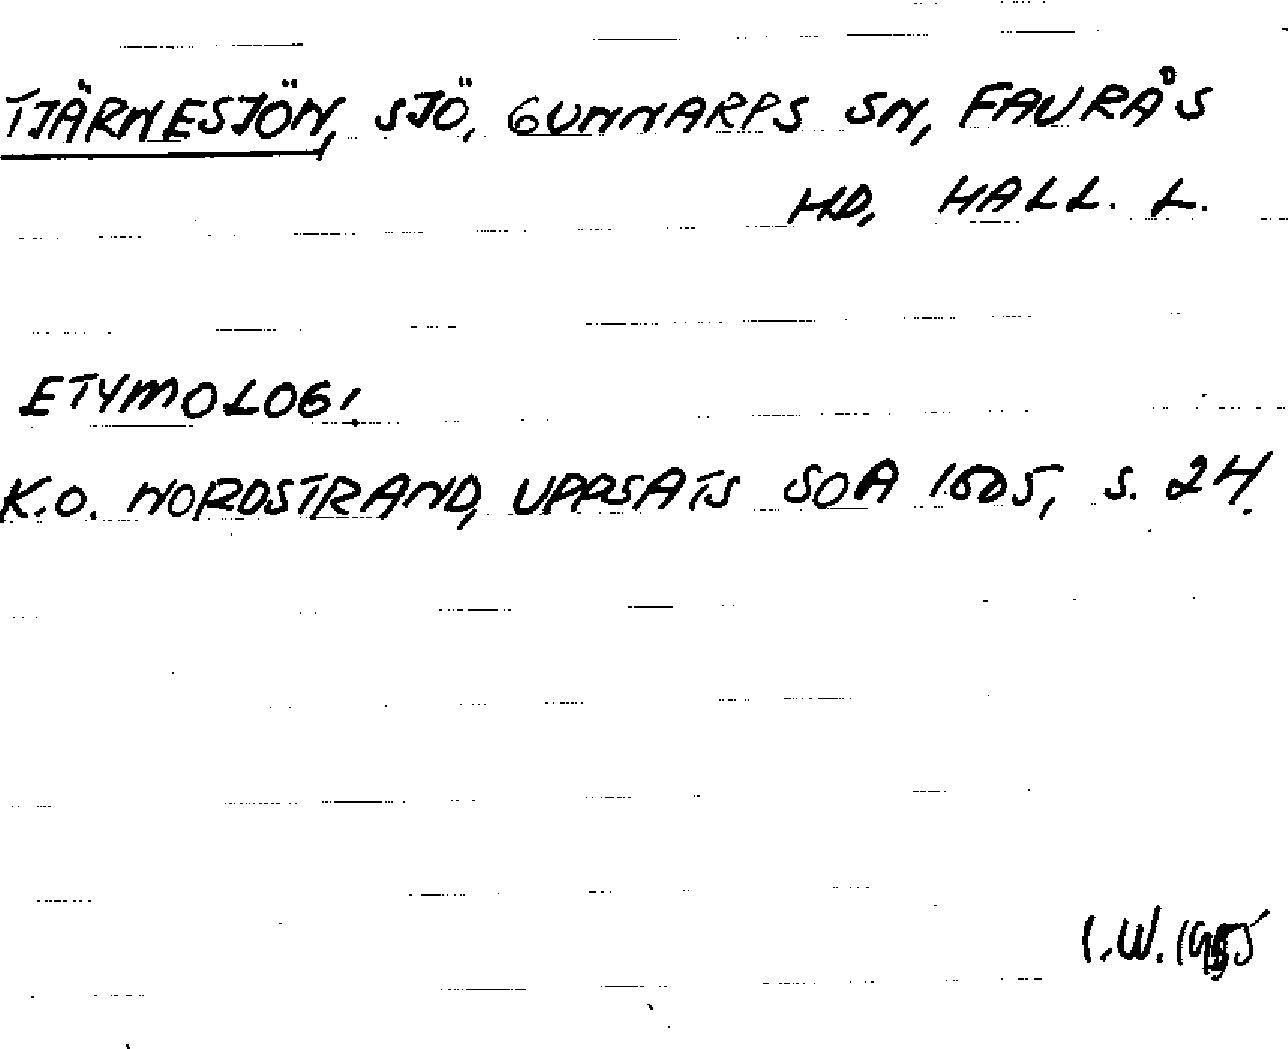 TJÄRNESJÖN, SJÖ, GUNNARPS SN, FAURÅS
HD, HALL. L.
ETYMOLOGI.
K.O. NORDSTRAND, UPPSATS SOA 1505, S. 24.
I.W. 1955